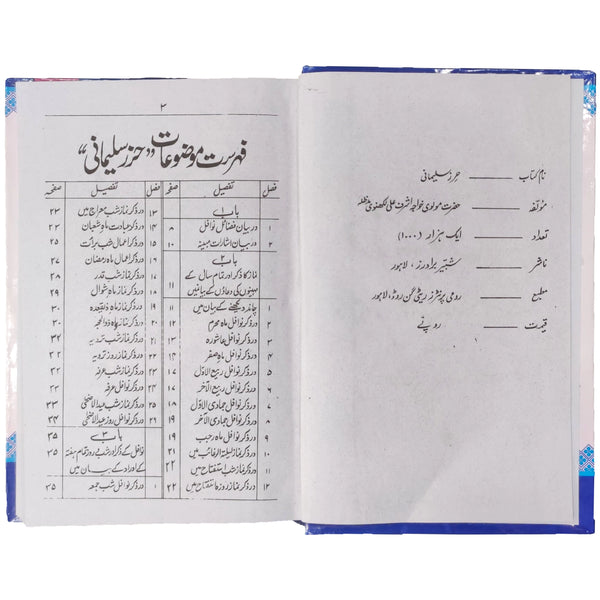 نام کتاب ——— حرز سلیمانی
مؤلفہ ——— حضرت مولوی خواجہ اشرف علی لکھنوی مدظلہ
تعداد ——— ایک ہزار (۱۰۰۰)
ناشر ——— شبیر برادرز، لاہور
مطبع ——— رومی پرنٹرز ریٹی گن روڈ، لاہور
قیمت ——— روپے
۲
فہرست موضوعات "حرز سلیمانی"
فصل تفصیل صفحہ
باب ۱
۱ در بیان فضائل نوافل ۸
۲ در بیان اشارات مبینہ ۱۰
باب ۲
نماز کا ذکر اور تمام سال کے
مہینوں کی دعاؤں کے بیان میں ۱۱
۱ چاند دیکھنے کے بیان میں ۱۱
۲ در ذکر نوافل ماہ محرم ۱۲
۳ در ذکر نوافل عاشورہ
۴ در ذکر نوافل ماہ صفر
۵ در ذکر نوافل ربیع الاوّل ۱۷
۶ در ذکر نوافل ربیع الآخر
۷ در ذکر نوافل جمادی الاوّل
۸ در ذکر نوافل جمادی الآخر ۱۹
۹ در ذکر نوافل ماہ رجب ۱۹
۱۰ در ذکر نماز لیلۃ الرغائب میں
۱۱ در ذکر نماز شب استفتاح میں ۲۲
۱۲ در ذکر نماز روز استفتاح میں ۲۲
فصل تفصیل صفحہ
۱۳ در ذکر نماز شب معراج میں ۲۳
۱۴ در ذکر عبادت ماہ شعبان ۲۳
۱۵ در ذکر اعمال شب برأت ۲۵
۱۶ در ذکر اعمال ماہ رمضان ۲۷
۱۷ در ذکر نماز شب قدر ۲۸
۱۸ در ذکر نماز ماہ شوال ۲۹
۱۹ در ذکر نماز ماہ ذلقعدہ ۳۰
۲۰ در ذکر نماز ماہ ذوالحجہ
۲۱ در ذکر نماز شب ترویہ
۲۲ در ذکر نماز روز ترویہ ۳۲
۲۳ در ذکر نماز شب عرفہ ۳۲
۲۴ در ذکر نوافل عرفہ
۲۵ در ذکر نماز شب عیدالاضحیٰ ۳۳
۲۶ در ذکر نوافل روز عیدالاضحیٰ ۳۴
باب ۳ ۳۵
نوافل کے ذکر اور شب روز تمام ہفتہ ۳۵
کے اوراد کے بیان میں
۱ در ذکر نوافل شب جمعہ ۳۵